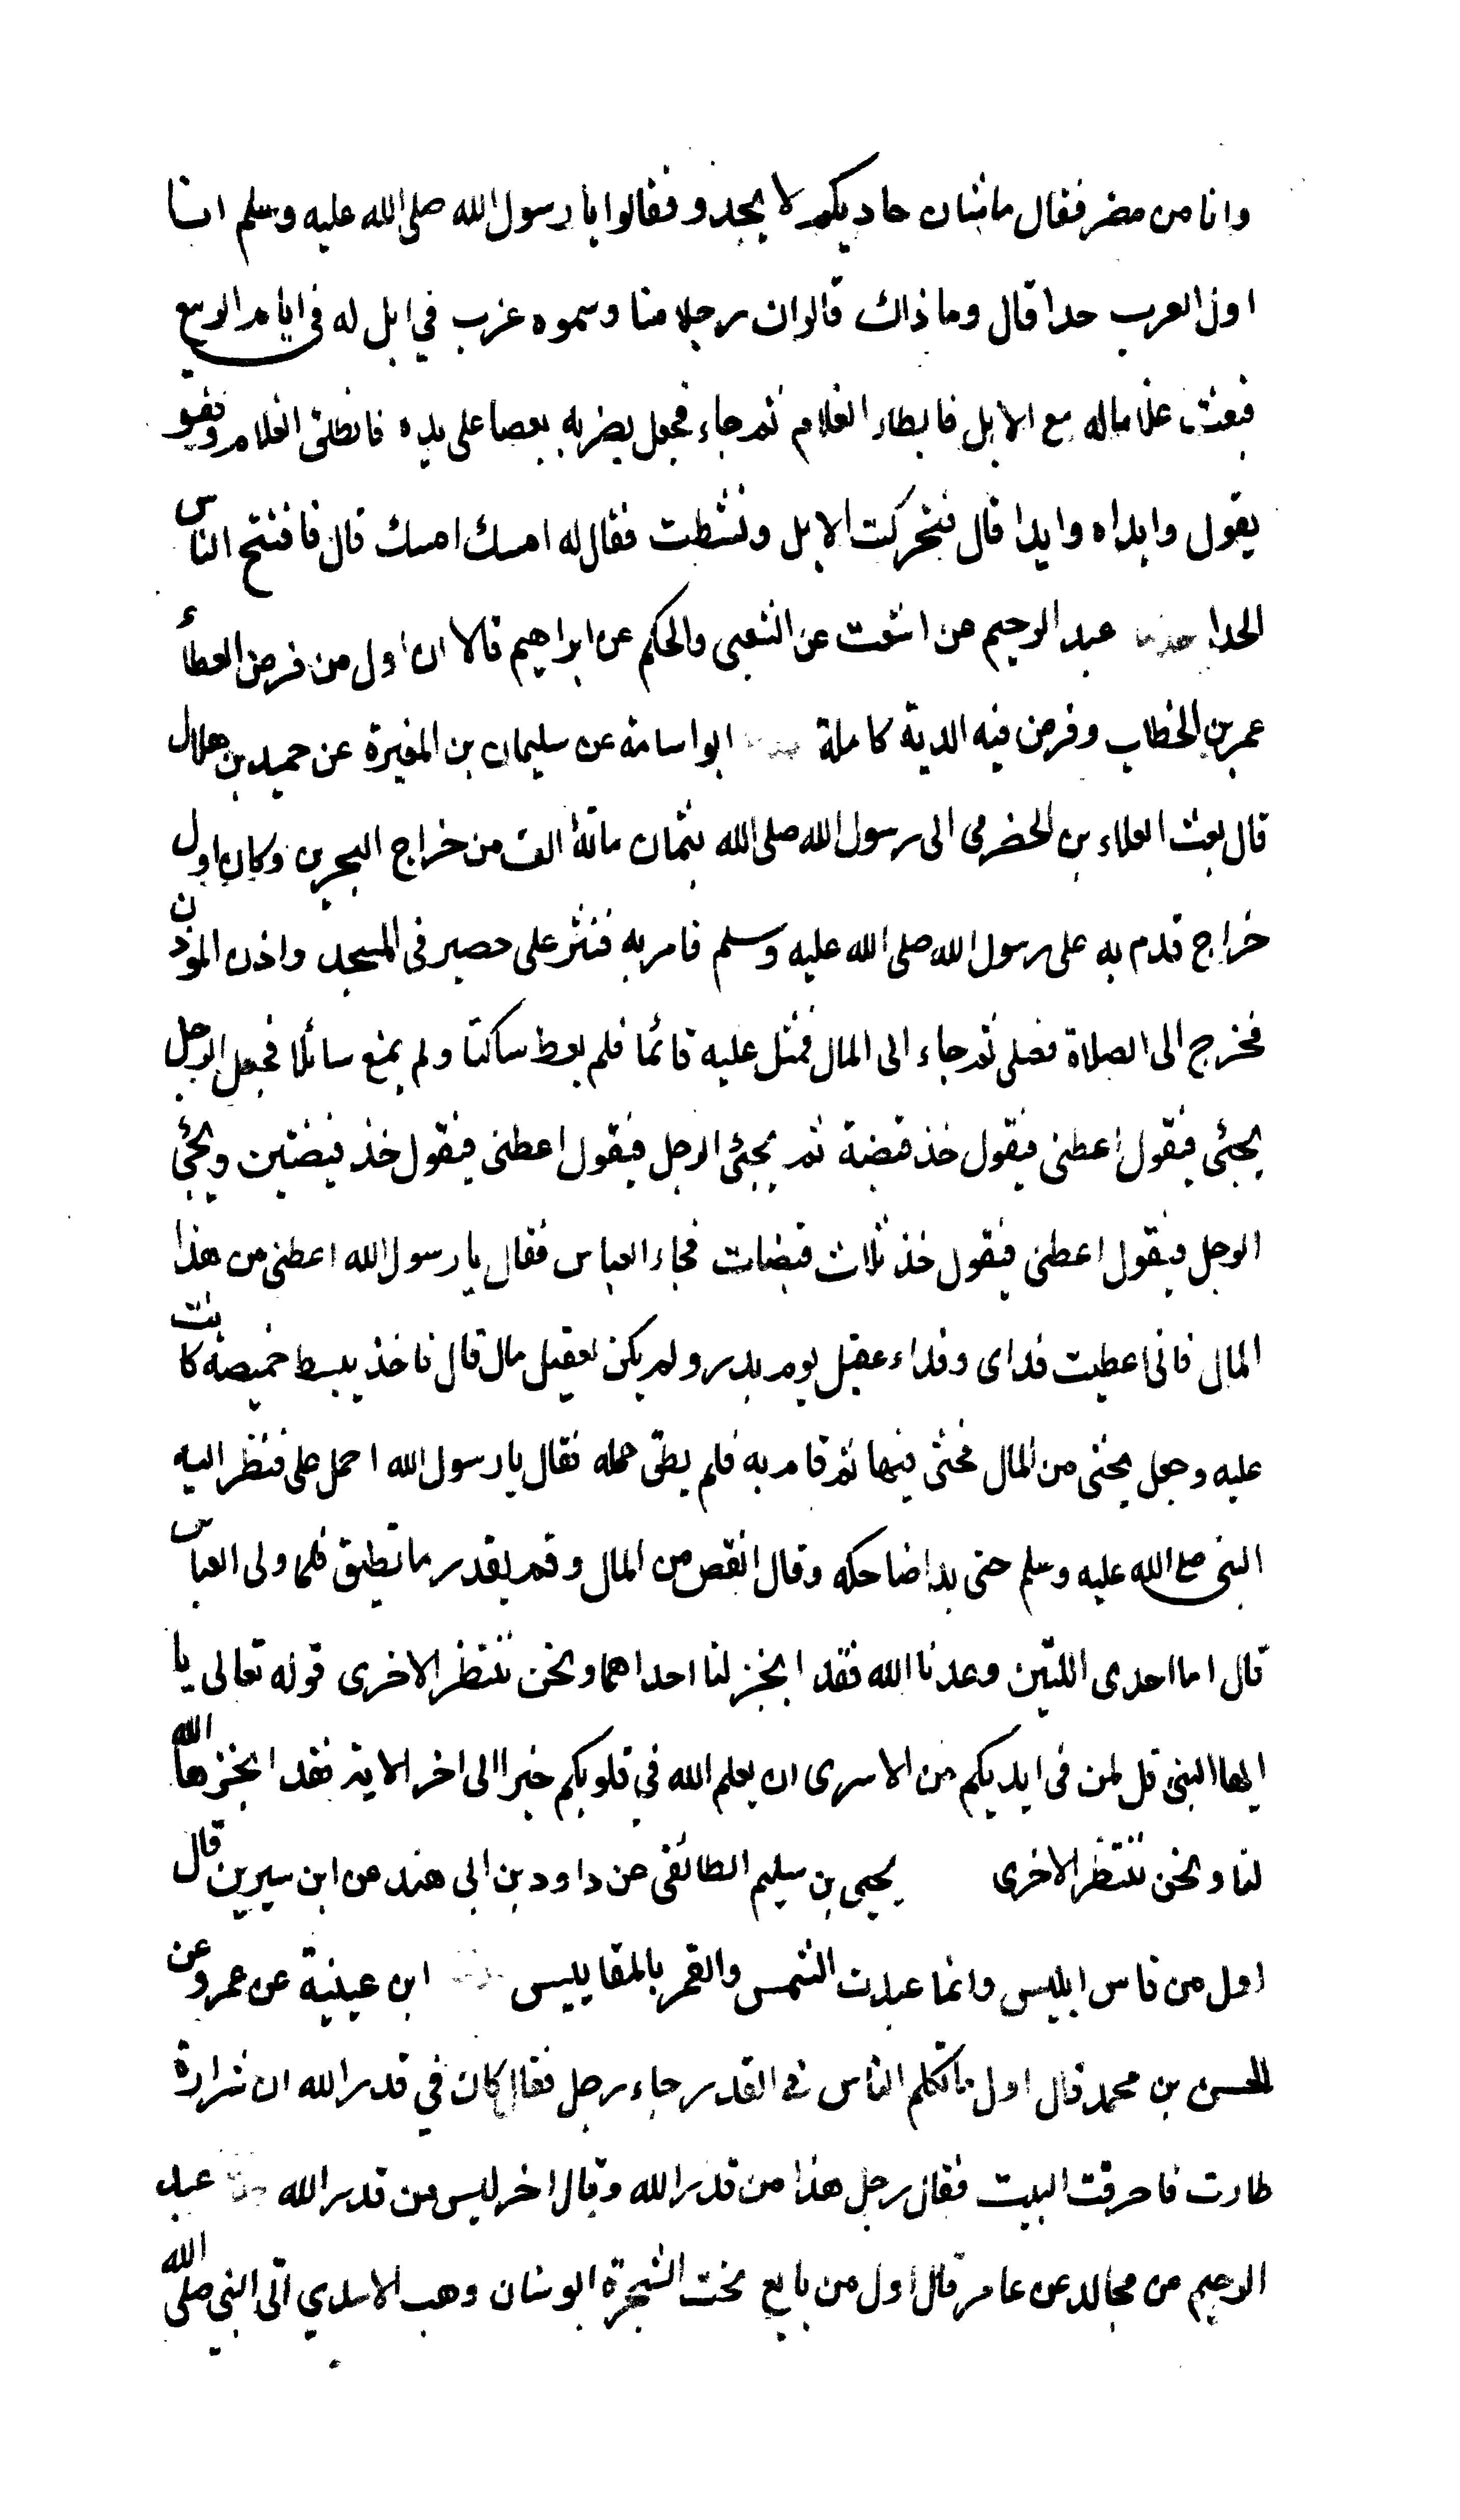 وانا من مضر فقال ما شان حاديكم لا يحدو فقالوا يا رسول الله صلى الله عليه وسلم انا
اول العرب حدا قال وما ذاك قالوا ان رجلا منا وسموه غرب في ابل له في ايام الربيع
فبعث غلاما له مع الابل فابطاء الغلام ثم جاء فجعل يضربه بعصا على يده فانطلق الغلام وهو
يقول وايداه وايدا قال فتحركت الابل ونشطت فقال له امسك امسك قال فافتتح الناس
الحدا حدثنا عبد الرحيم عن اشعث عن الشعبي والحكم عن ابراهيم قالا ان اول من فرض العطاء
عمر بن الخطاب وفرض فيه الدية كاملة ابو اسامة عن سليمان بن المغيرة عن حميد بن هلال
قال بعث العلاء بن الحضرمي الى رسول الله صلى الله بثمان مائة الف من خراج البحرين وكان اول
خراج قدم به على رسول الله صلى الله عليه وسلم فامر به فنثر على حصير في المسجد واذن الموذن
فخرج الى الصلاة فصلى ثم جاء الى المال فمثل عليه قائما فلم يعط ساكتا ولم يمنع سائلا فجعل الرجل
يجئ فيقول اعطنى فيقول خذ قبضة ثم يجئ الرجل فيقول اعطنى فيقول خذ قبضتين ويجئ
الرجل فيقول اعطنى فيقول خذ ثلاث قبضات فجاء العباس فقال يا رسول الله اعطنى من هذا
المال فانى اعطيت فداى وفداء عقيل يوم بدر ولم يكن لعقيل مال قال فاخذ يبسط خميصة كانت
عليه وجعل يحثى من المال فحثى فيها ثم قام به فلم يطق حمله فقال يا رسول الله احمل على فنظر اليه
النبى صلى الله عليه وسلم حتى بدا ضاحكه وقال انقص من المال وقم بقدر ما تطيق فلما ولى العباس
قال اما احدى اللتين وعدنا الله فقد انجز لنا احداهما ونحن ننتظر الاخرى قوله تعالى يا
ايها النبى قل لمن فى ايديكم من الاسرى ان يعلم الله في قلوبكم خيرا الى اخر الاية فقد انجزها الله
لنا ونحن ننتظر الاخرى يحيى بن سليم الطائفى عن داود بن ابى هند عن ابن سيرين قال
اول من قاس ابليس وانما عبدت الشمس والقمر بالمقاييس ابن عيينة عن عمرو عن
الحسن بن محمد قال اول ما تكلم الناس فى القدر جاء رجل فقال كان في قدر الله ان شرارة
طارت فاحرقت البيت فقال رجل هذا من قدر الله وقال اخر ليس من قدر الله عبد
الرحيم عن مجالد عن عامر قال اول من بايع تحت الشجرة ابو سنان وهب الاسدي اتى النبي صلى الله